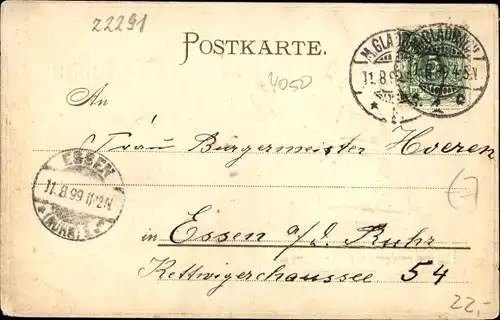 22291
POSTKARTE.
M. GLADBACH
11.8.99
4050
An
Frau Bürgermeister Hoeren
ESSEN
11.8.99 11-12N
(RUHR)
in Essen a/d. Ruhr
Kettwigerchaussee 54
22,-